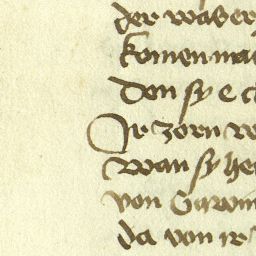 der waser
komen ma
Den sy e c
Ir zorn w
Wan sy he
von Gawin
da von ir